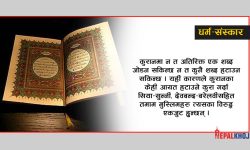 धर्म-संस्कार
कुरानमा न त अतिरिक्त एक शब्द
जोडन सकिन्छ न त कुनै शब्द हटाउन
सकिन्छ । यही कारणले कुरानका
केही आयत हटाउने कुरा गर्दा
सिया-सुन्नी, देवबन्द-बरेलवीसहित
तमाम मुस्लिमहरु त्यसका विरुद्ध
एकजुट हुन्छन् ।
NEPALKHOJ